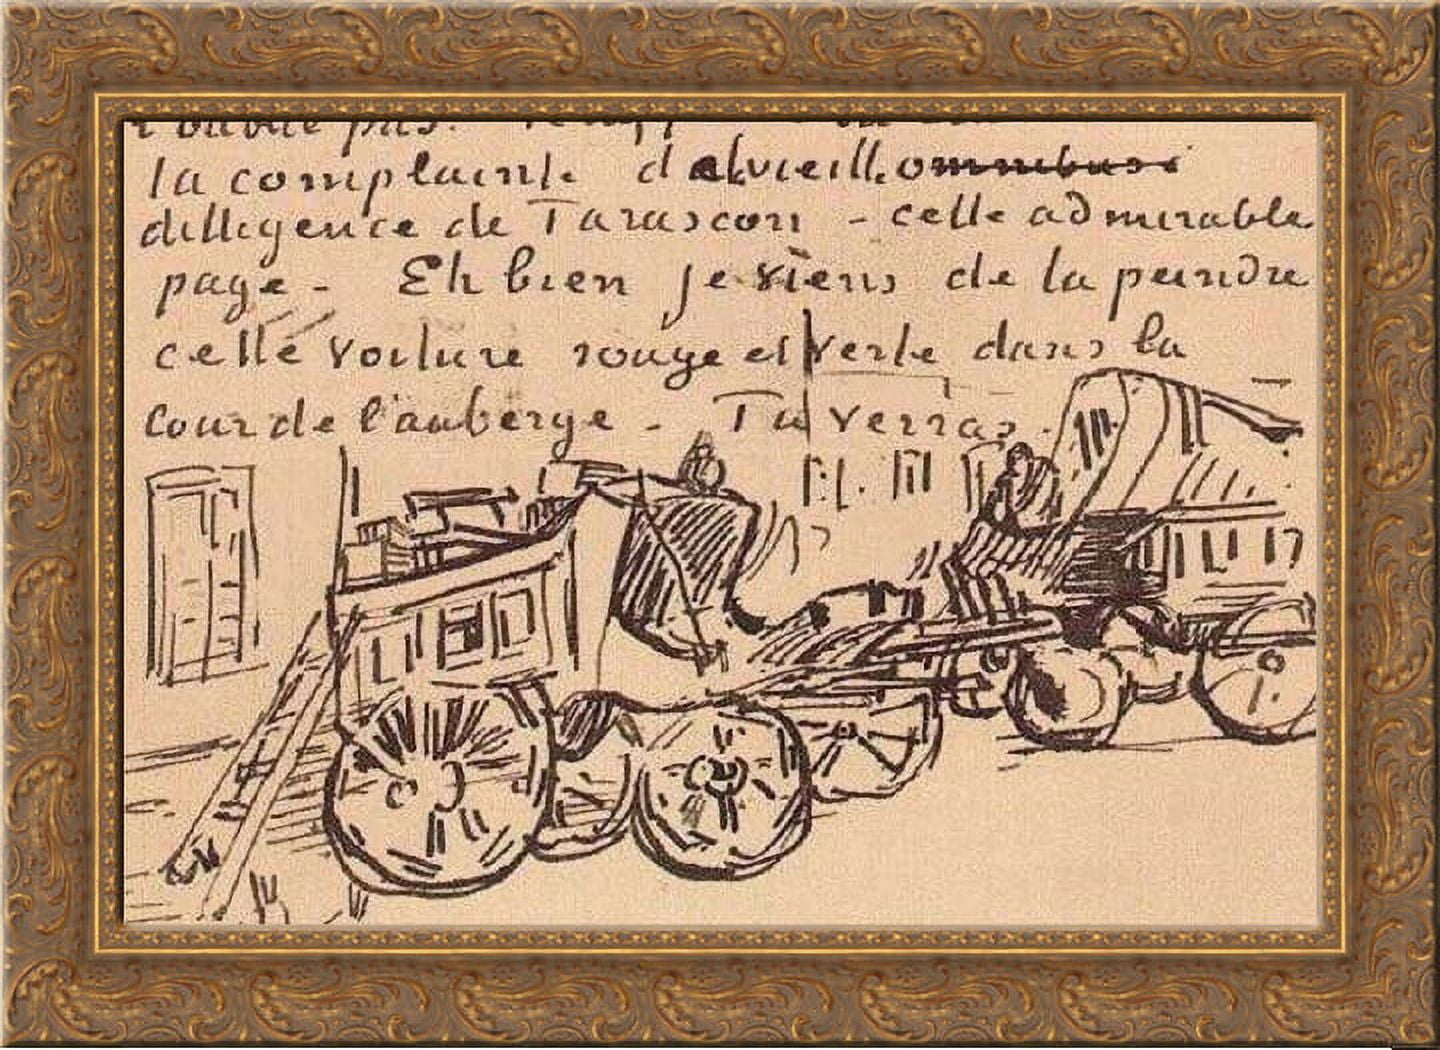 l'oublie pas.
la complainte de la vieille omnibus
dilligence de Tarascon - cette admirable
page - Eh bien je viens de la peindre
cette voiture rouge et verte dans la
cour de l'auberge - Tu verras.